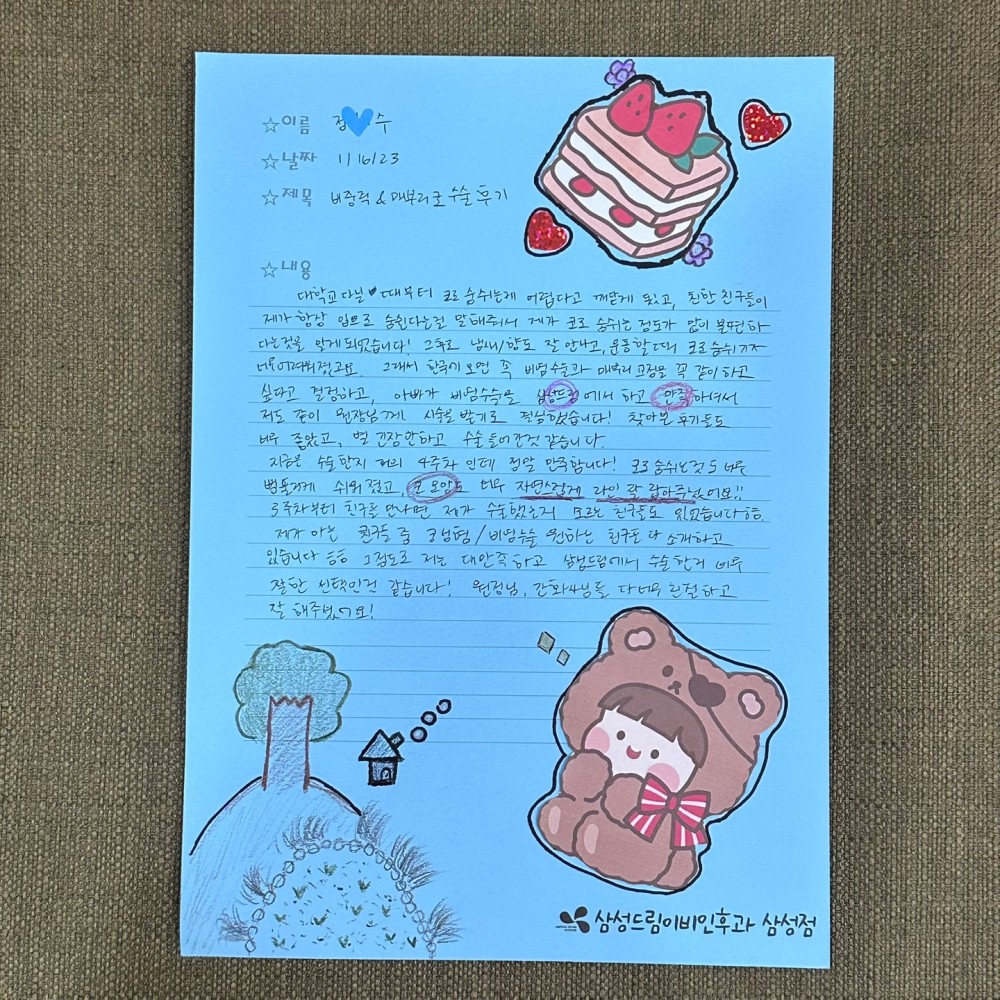 ☆이름 정 수
☆날짜 1/16/23
☆제목 비중격 & 매부리코 수술 후기
☆내용
대학교 다닐 ♥ 때부터 코로 숨쉬는게 어렵다고 깨닫게 됬고, 친한 친구들이
제가 항상 입으로 숨쉰다는걸 말해줘서 제가 코로 숨쉬는 정도가 많이 불편하
다는것을 알게 되었습니다! 그후로 냄새/향도 잘 안나고, 운동할때 코로 숨쉬기가
너무 어려워졌고요. 그래서 한국에 오면 꼭 비염수술과 매부리 교정을 꼭 같이 하고
싶다고 결정하고, 아빠가 비염수술을 삼성드림에서 하고 만족하셔서
저도 같이 원장님께 시술을 받기로 결심했습니다! 찾아본 후기들도
너무 좋았고, 별 긴장 안하고 수술 들어간것 같습니다.
지금은 수술한지 거의 4주차 인데 정말 만족합니다! 코로 숨쉬는것도 너무
쉬워졌고, 코 모양도 너무 자연스럽게 라인 잘 잡아주셨어요!!
3주차부터 친구를 만나면 제가 수술했는지 모르는 친구들도 있었습니다
제가 아는 친구들 중 코성형/비염수술 원하는 친구도 다 소개하고
있습니다 ㅎㅎ 그정도로 저는 대만족하고 삼성드림에서 수술한거 너무
잘한 선택인것 같습니다! 원장님, 간호사님들 다 너무 친절하고
잘 해주셨어요!
삼성드림이비인후과 삼성점